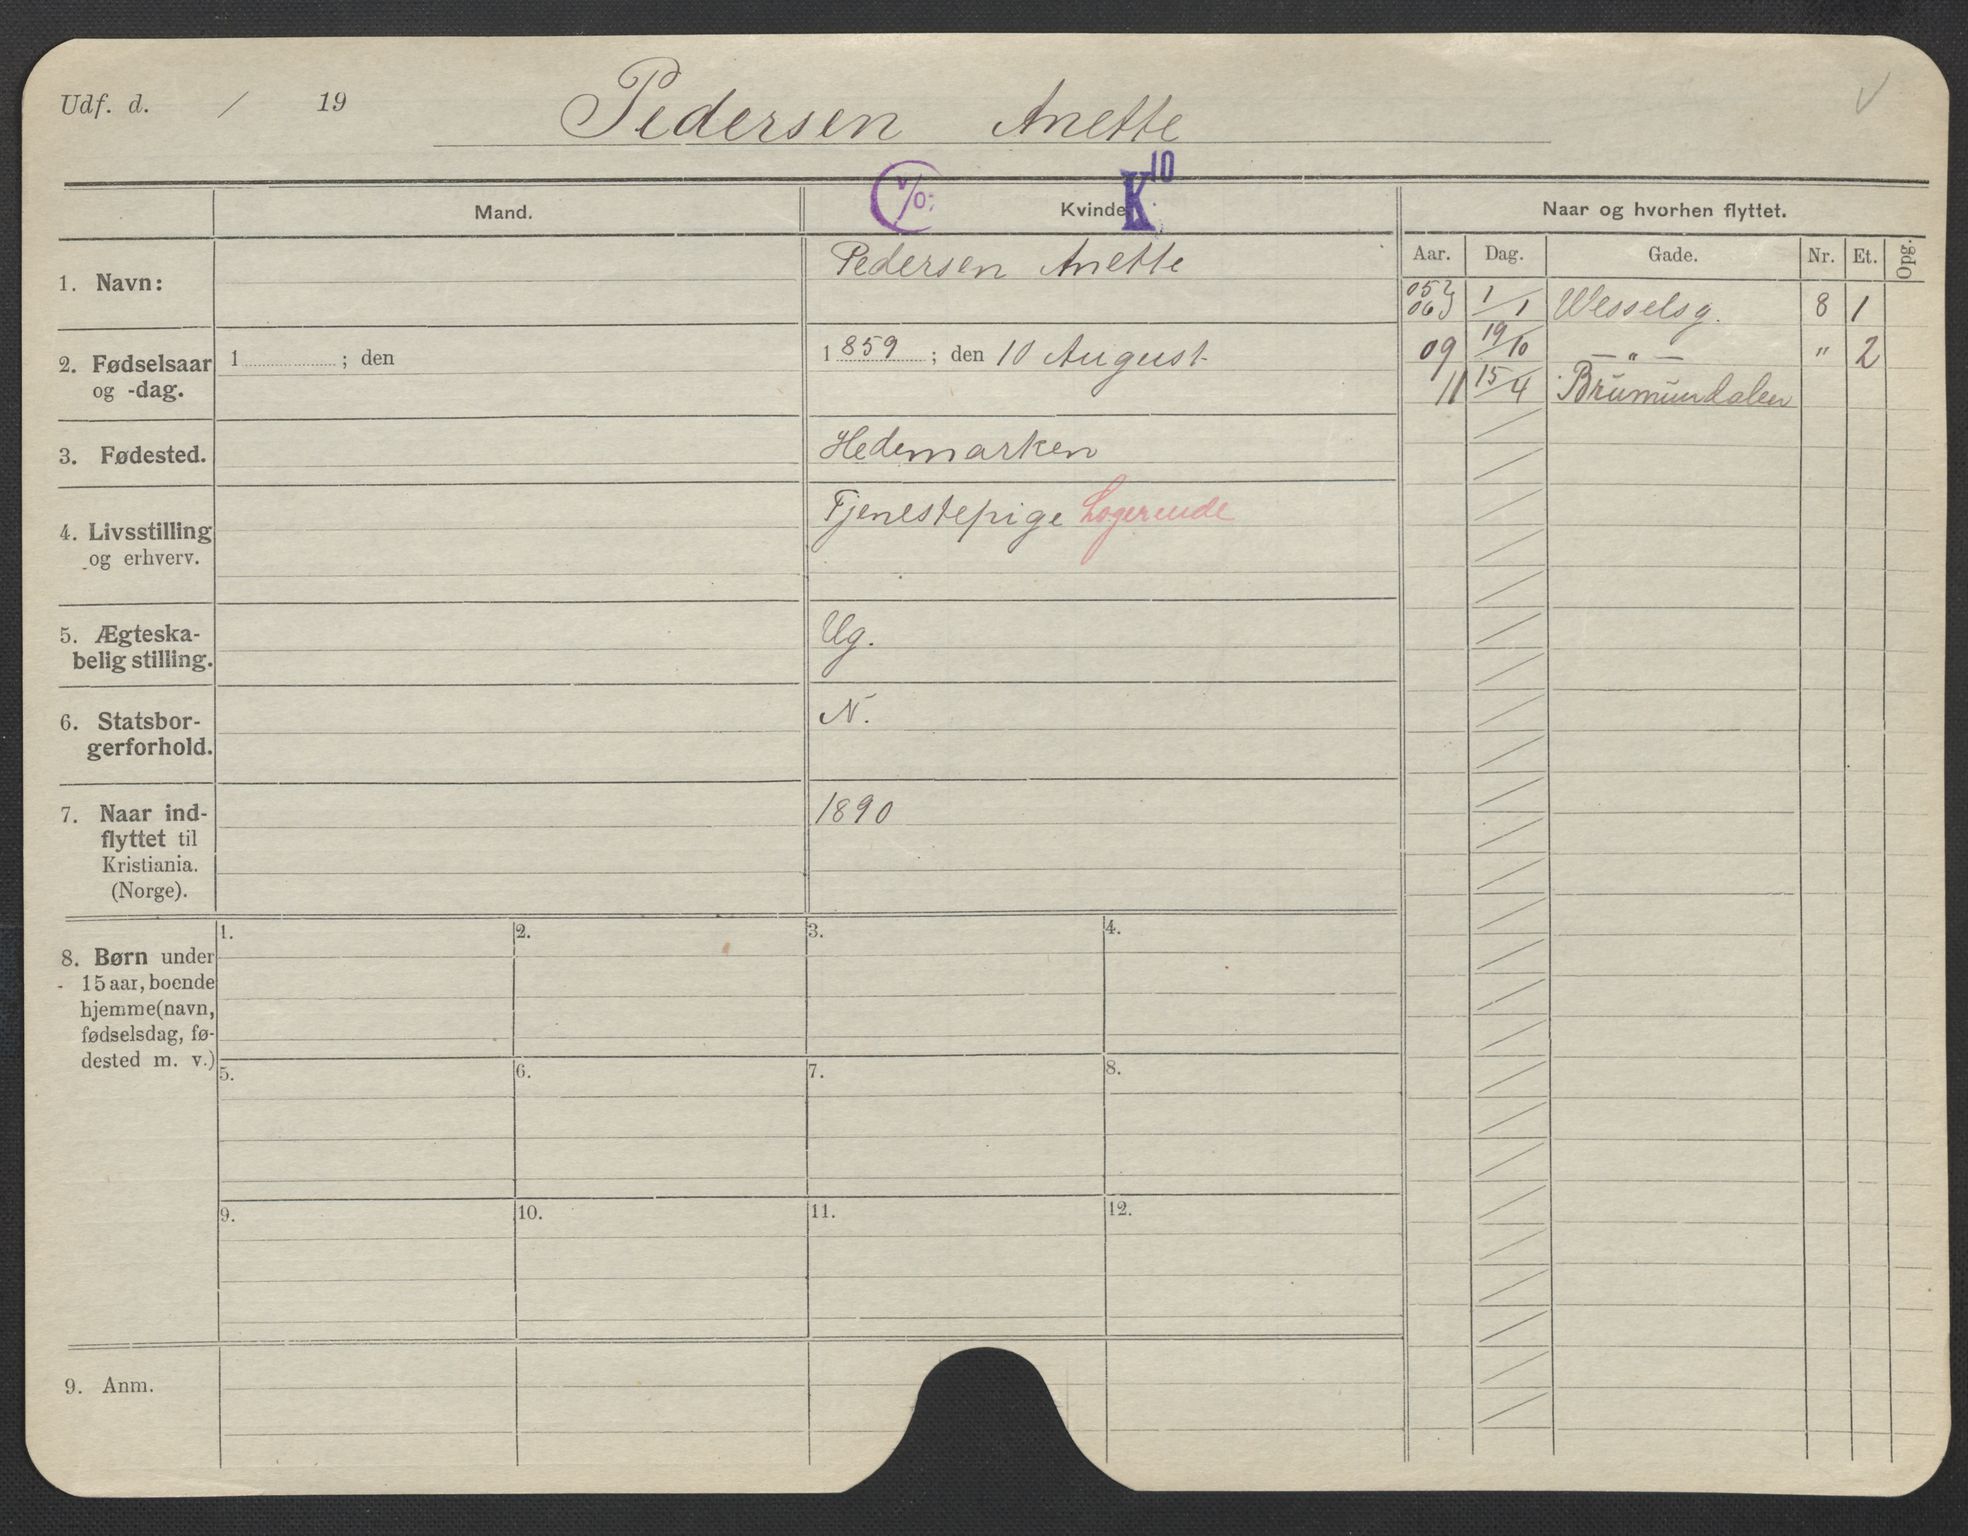 Udf. d. / 19
Pedersen Anette
K 10
Mand.
Kvinde.
Naar og hvorhen flyttet.
Aar. Dag. Gade. Nr. Et. Opg.
1. Navn:
Pedersen Anette
2. Fødselsaar
og -dag.
1 ; den
1 859 ; den 10 August
3. Fødested.
Hedemarken
4. Livsstilling
og erhverv.
Tjenestepige Logerende
5. Ægteska-
belig stilling.
Ug.
6. Statsbor-
gerforhold.
N.
7. Naar ind-
flyttet til
Kristiania.
(Norge).
1890
05
06 1/1 Wesselsg. 8 1
09 19/10 — " — " 2
11 15/4 Brumunddalen
8. Børn under
15 aar, boende
hjemme (navn,
fødselsdag, fø-
dested m. v.)
1. 2. 3. 4.
5. 6. 7. 8.
9. 10. 11. 12.
9. Anm.